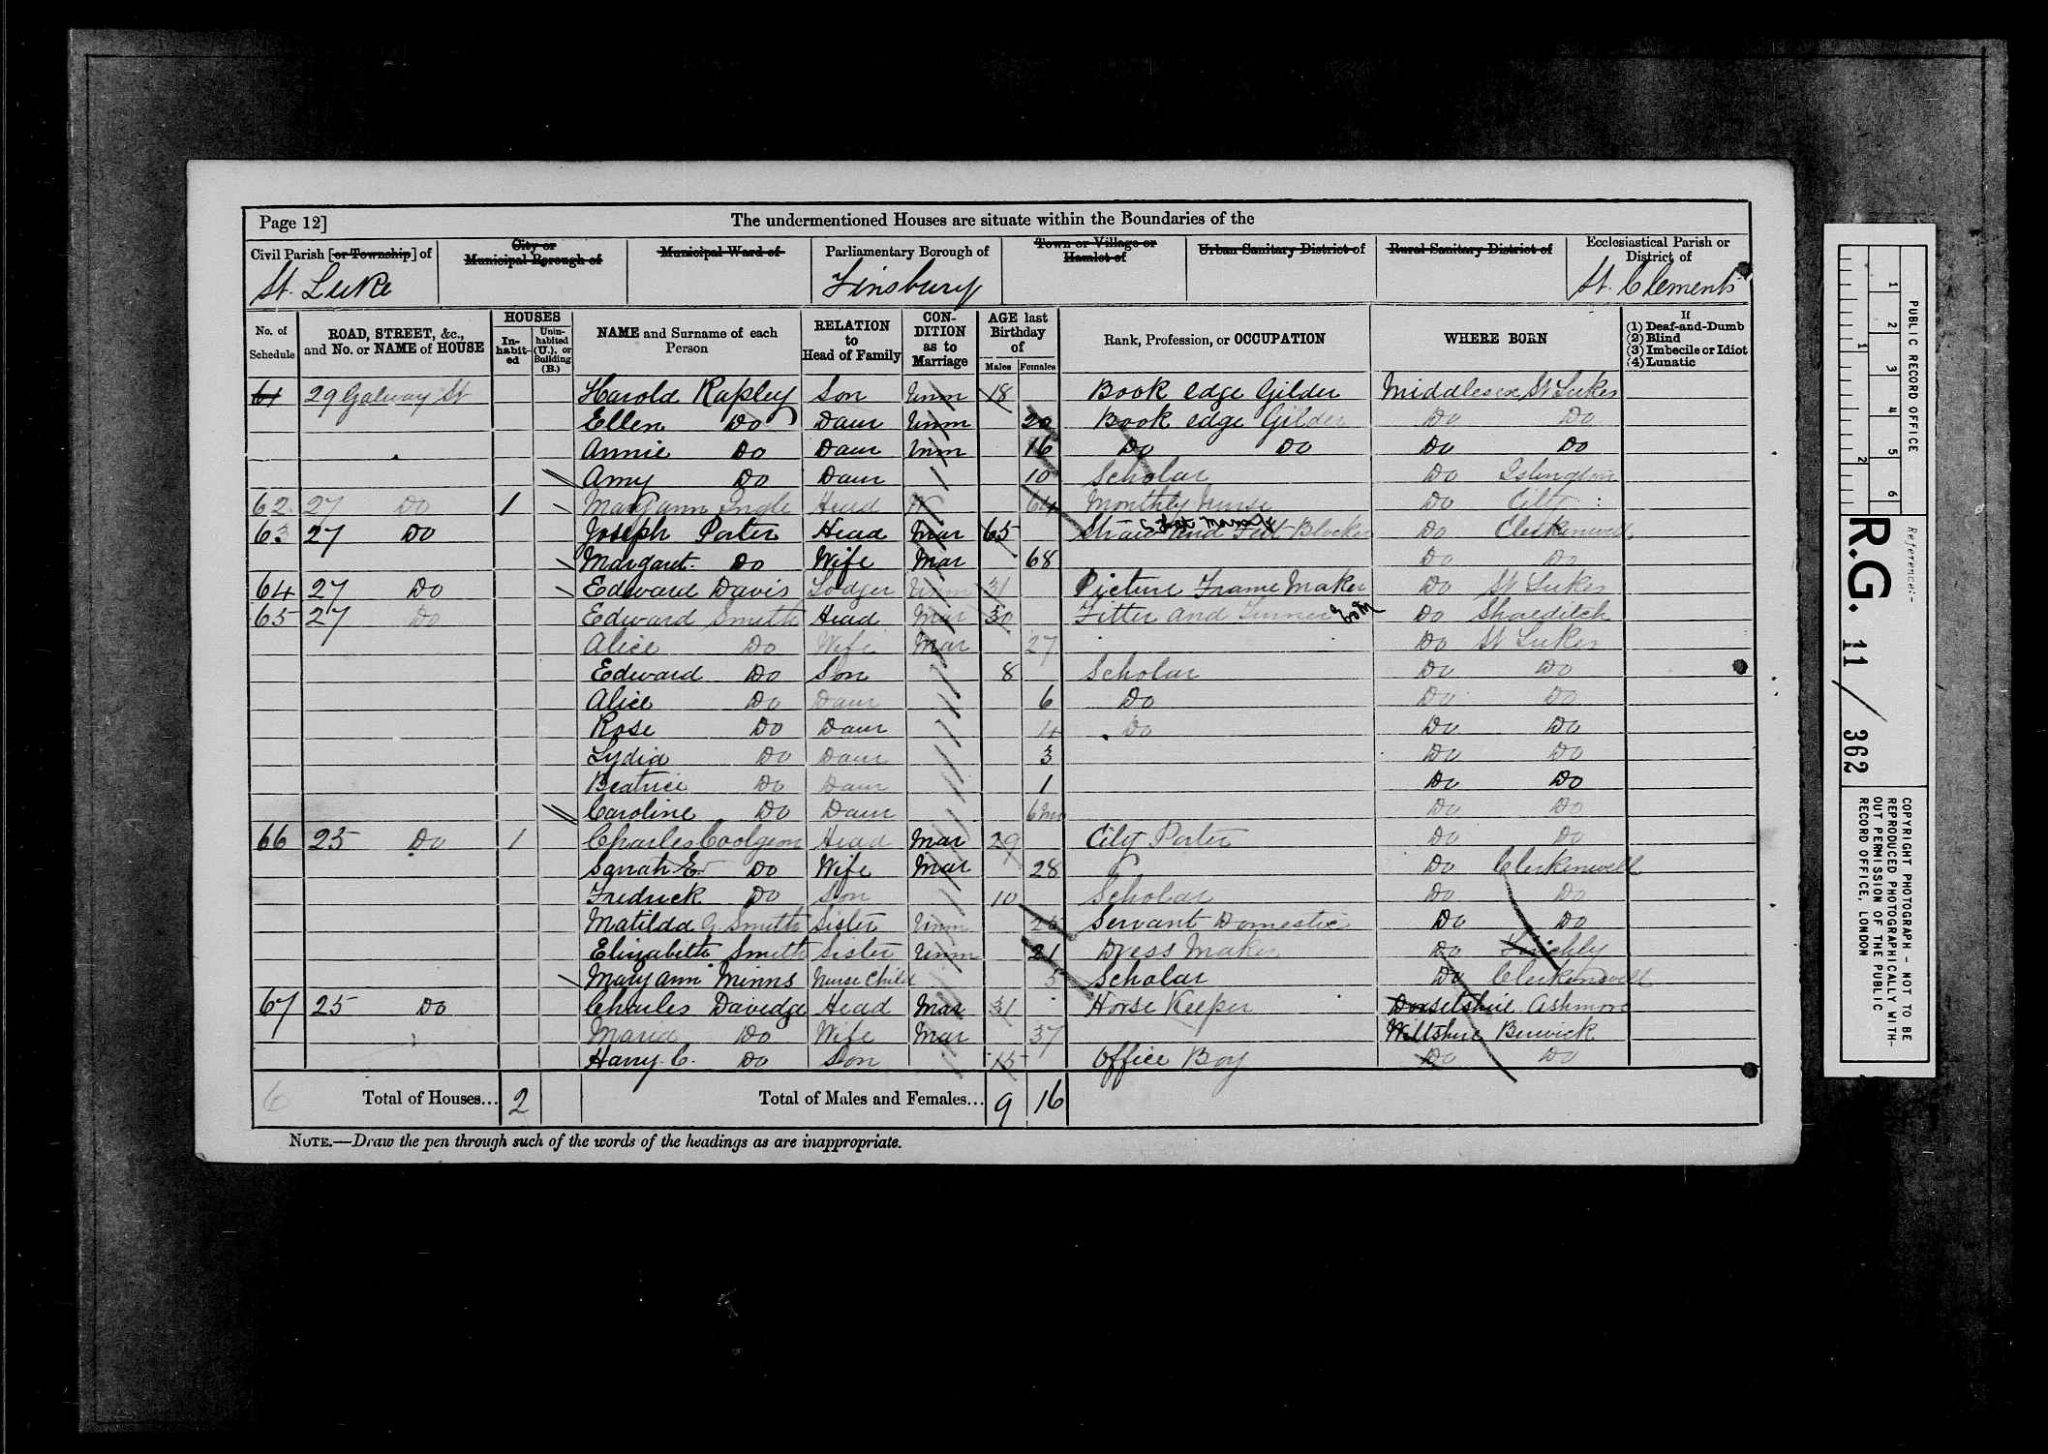 Page 12]
The undermentioned Houses are situate within the Boundaries of the
Civil Parish [or Township] of
City or Municipal Borough of
Municipal Ward of
Parliamentary Borough of
Town or Village or Hamlet of
Urban Sanitary District of
Rural Sanitary District of
Ecclesiastical Parish or District of
St. Luke
Finsbury
St. Clements
No. of Schedule
ROAD, STREET, &c., and No. or NAME of HOUSE
HOUSES
In-habit-ed
Unin-habited (U.), or Building (B.)
NAME and Surname of each Person
RELATION to Head of Family
CON-DITION as to Marriage
AGE last Birthday of
Males
Females
Rank, Profession, or OCCUPATION
WHERE BORN
If
(1) Deaf-and-Dumb
(2) Blind
(3) Imbecile or Idiot
(4) Lunatic
61 29 Galway St Harold Rapley Son Unm 18 Book edge Gilder Middlesex St Lukes
Ellen Do Daur Unm 20 Book edge Gilder Do Do
Annie Do Daur Unm 16 Do Do Do Do
Amy Do Daur 10 Scholar Do Islington
62 27 Do 1 Mary ann Ingle Head W 64 Monthly Nurse Do City
63 27 Do Joseph Porter Head Mar 65 Straw and Felt Blocker Do Clerkenwell
Margaret Do Wife Mar 68 Do Do
64 27 Do Edward Davis Lodger Unm 31 Picture Frame Maker Do St Lukes
65 27 Do Edward Smith Head Mar 30 Fitter and Turner Do Shoreditch
Alice Do Wife Mar 27 Do St Lukes
Edward Do Son 8 Scholar Do Do
Alice Do Daur 6 Do Do Do
Rose Do Daur 4 Do Do Do
Lydia Do Daur 3 Do Do
Beatrice Do Daur 1 Do Do
Caroline Do Daur 6 mo Do Do
66 25 Do 1 Charles Coolgeon Head Mar 29 City Porter Do Do
Sarah E Do Wife Mar 28 Do Clerkenwell
Fredrick Do Son 10 Scholar Do Do
Matilda G Smith Sister Unm Servant Domestic Do Do
Elizabeth Smith Sister Unm 21 Dress Maker Do Finchly
Mary ann Minns Nurse Child 5 Scholar Do Clerkenwell
67 25 Do Charles Davidge Head Mar 31 Horse Keeper Dorsetshire Ashmore
Maria Do Wife Mar 37 Wiltshire Berwick
Harry C. Do Son 15 Office Boy Do Do
6 Total of Houses... 2 Total of Males and Females... 9 16
NOTE.—Draw the pen through such of the words of the headings as are inappropriate.
PUBLIC RECORD OFFICE
1 2 3 4 5 6
1 2
Reference:-
R.G. 11 / 362
COPYRIGHT PHOTOGRAPH - NOT TO BE REPRODUCED PHOTOGRAPHICALLY WITH-OUT PERMISSION OF THE PUBLIC RECORD OFFICE, LONDON